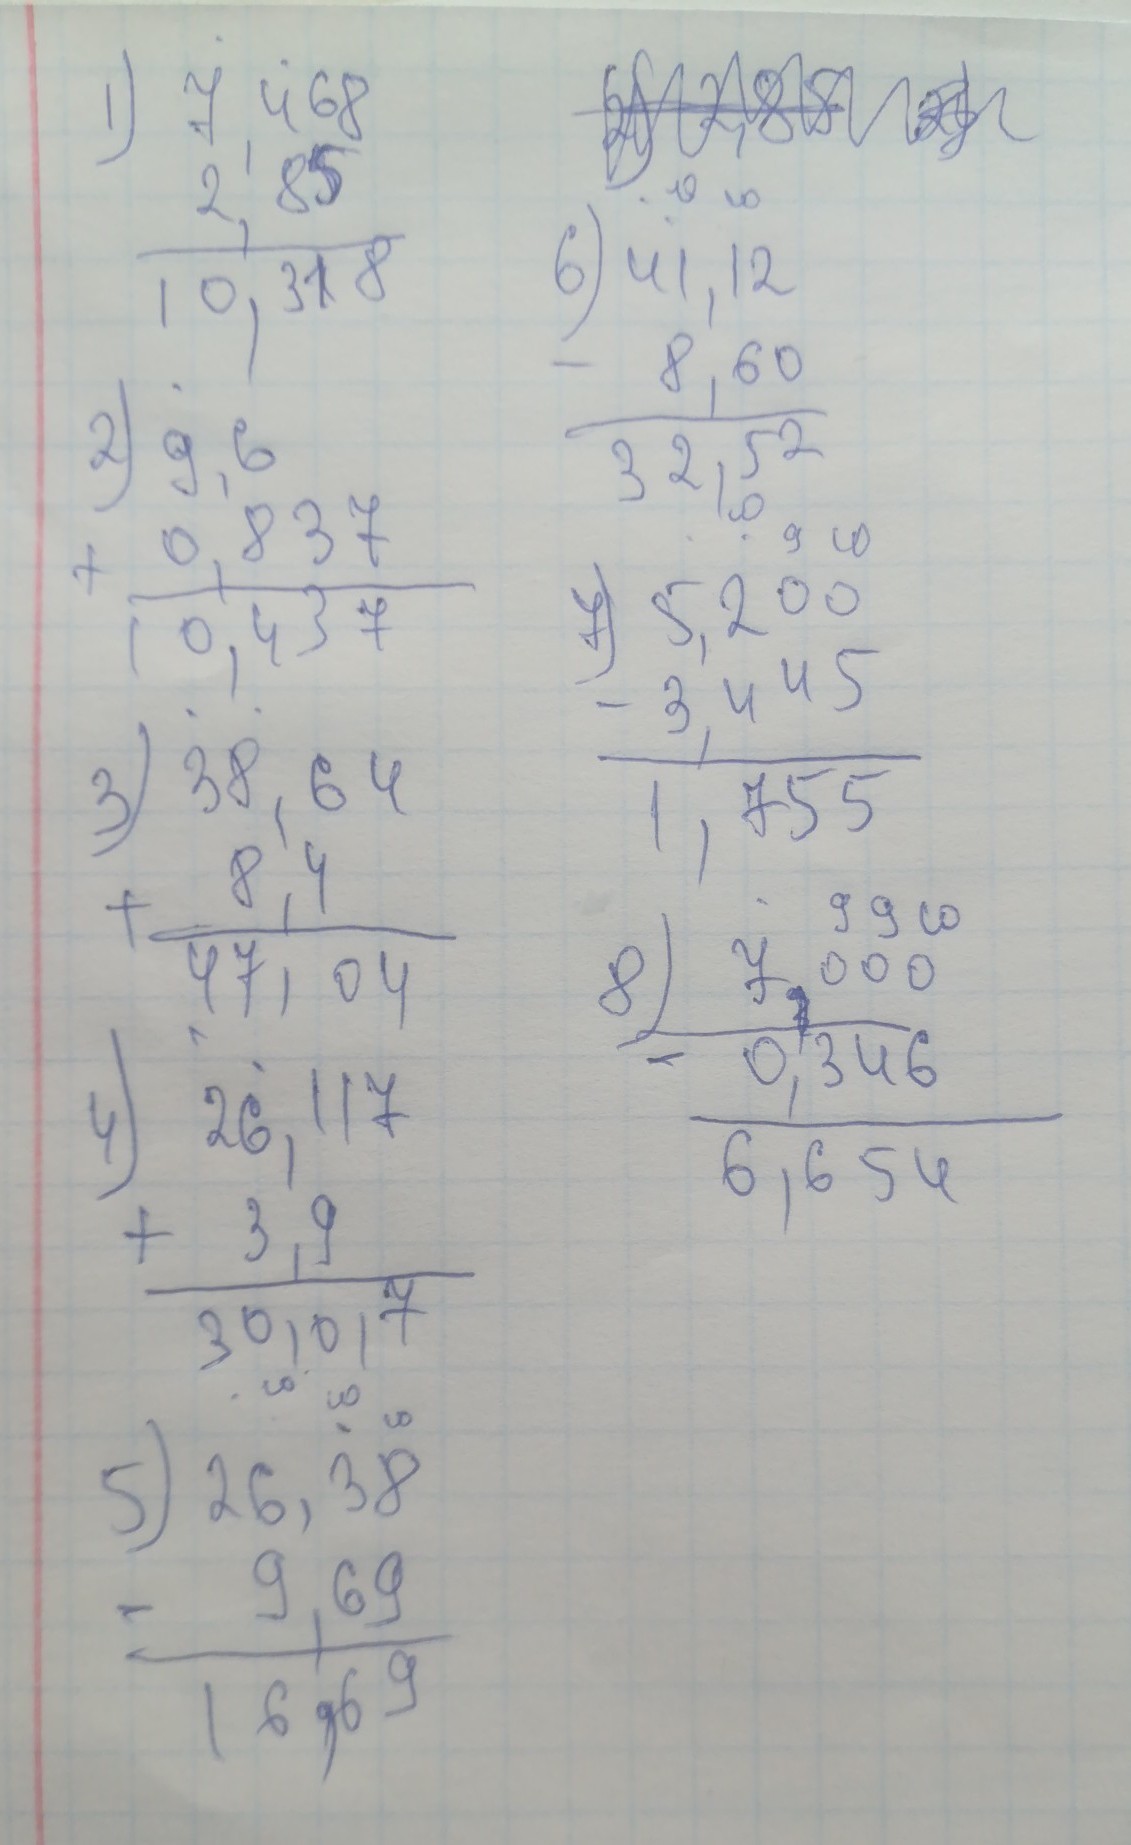 1) 7,468
2,85
10,318
2) 9,6
+ 0,837
10,437
3) 38,64
+ 8,4
47,04
4) 26,117
+ 3,9
30,0,7
10 10 10
5) 26,38
- 9,69
16,69
10 10
6) 41,12
- 8,60
32,52
10 9 10
7) 5,200
- 3,445
1,755
9 9 10
8) 7,000
- 0,346
6,654